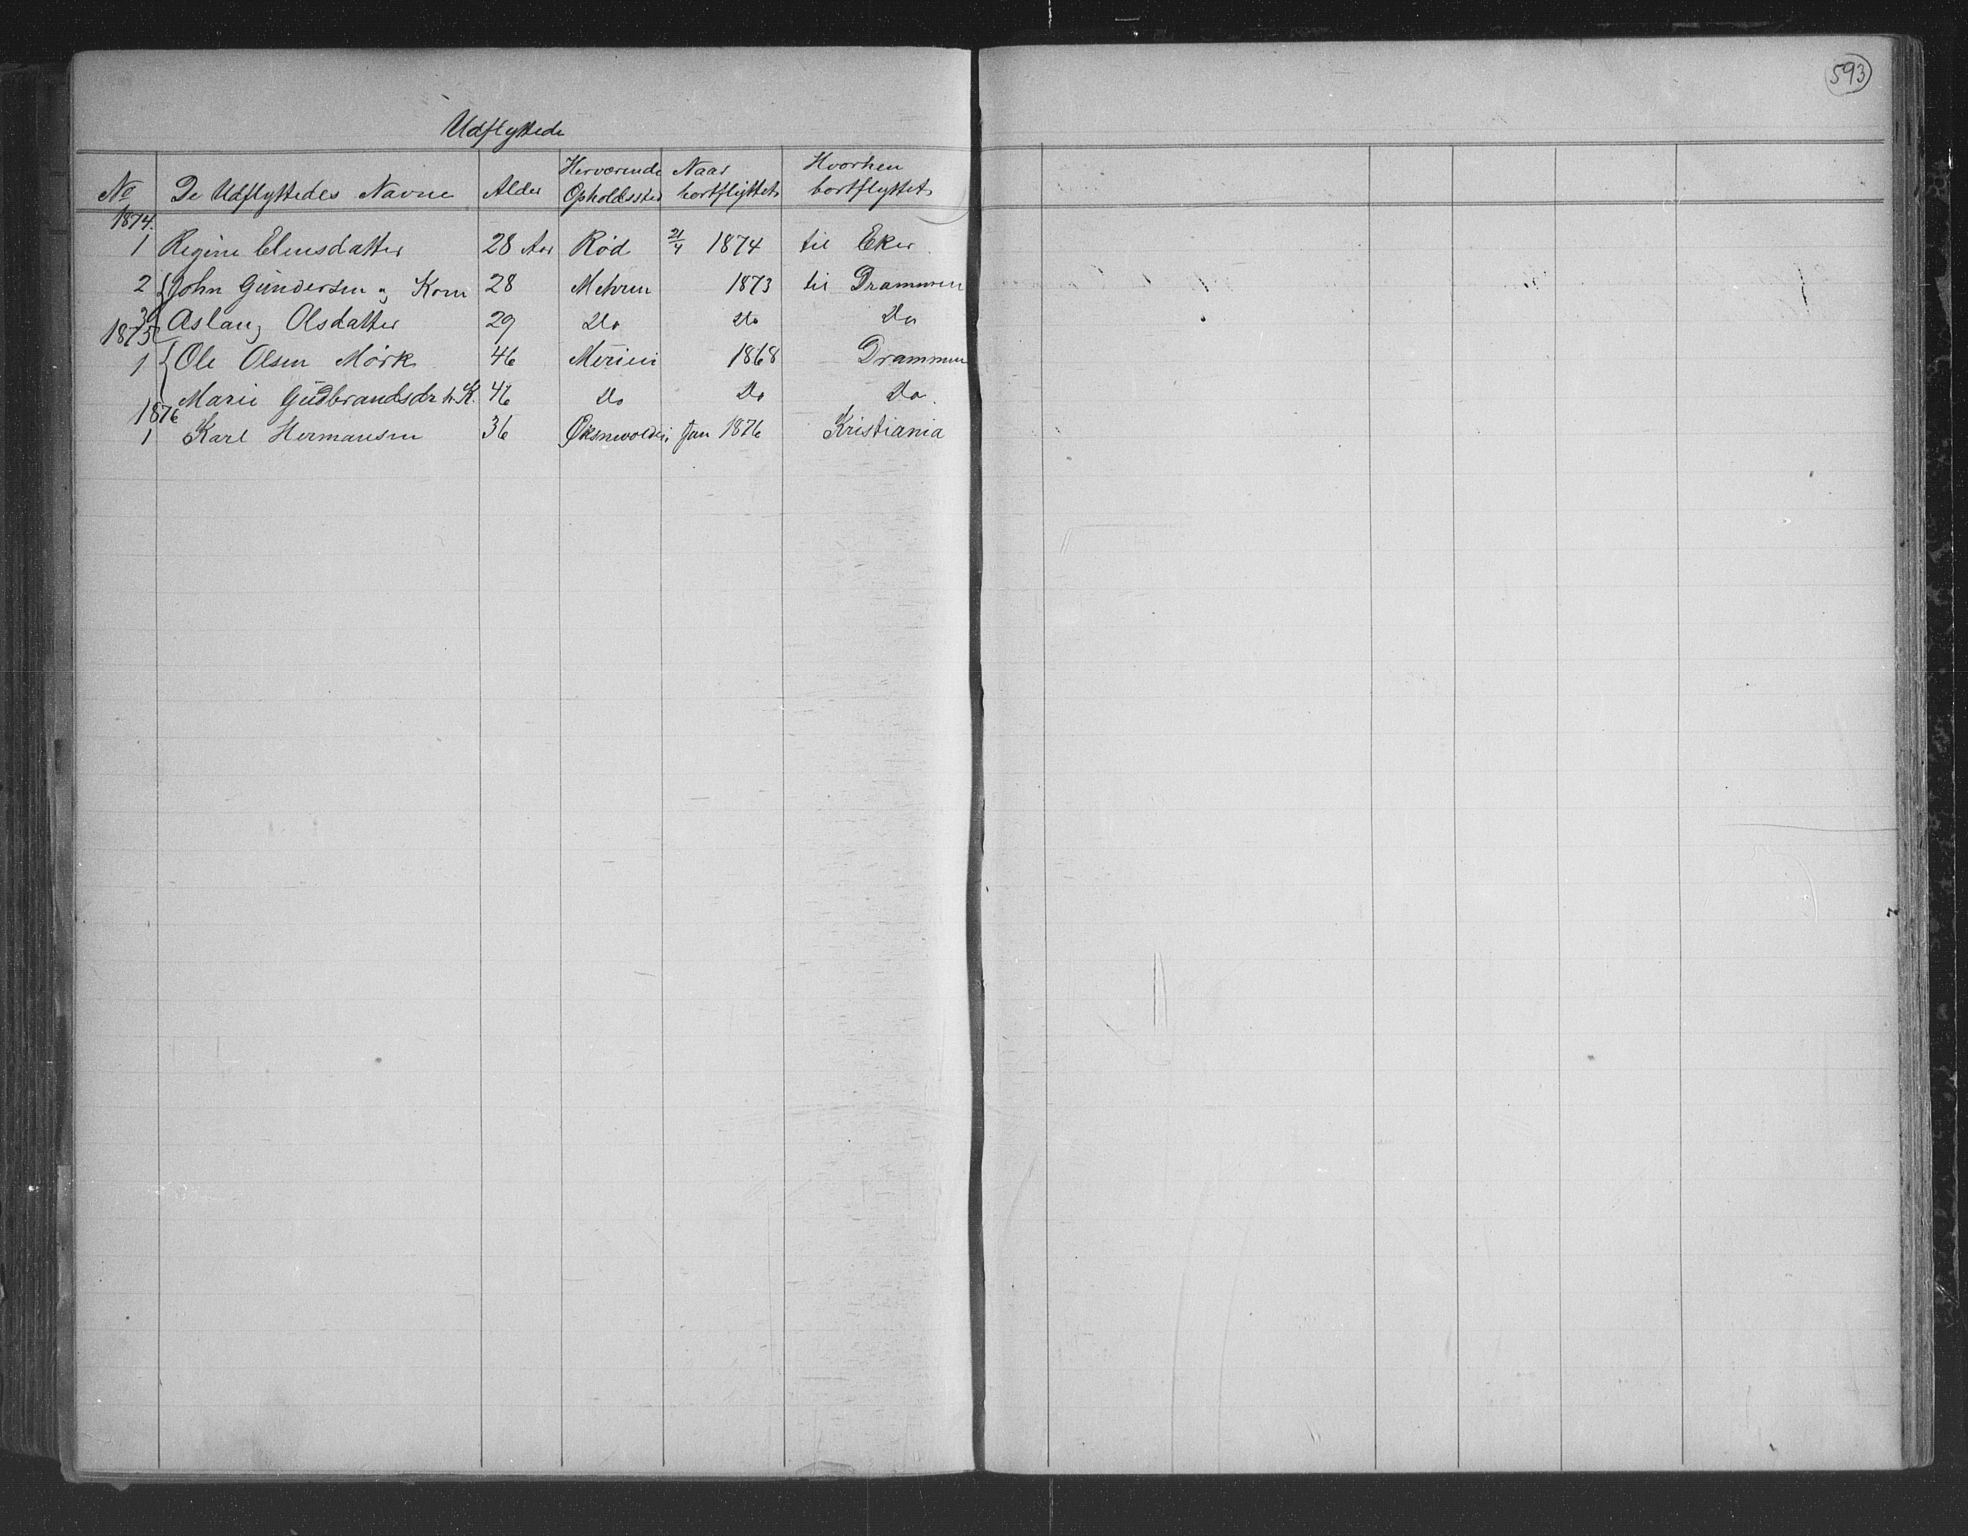 593
Udflyttede
No De Udflyttedes Navne Alder Herværende Opholdssted Naar bortflyttet Hvorhen bortflyttet
1874.
1 Regine Elensdatter 28 Aar Rød 21/4 1874 til Eker
2 John Gundersen og Kone 28 Mehren 1873 til Drammen
3 Aslaug Olsdatter 29 Do Do Do
1875
1 Ole Olsen Mørk 46 1868 Drammen
Marie Gudbrandsdr h. K. 46 Do Do Do.
1876
1 Karl Hermansen 36 Jan 1876 Kristiania